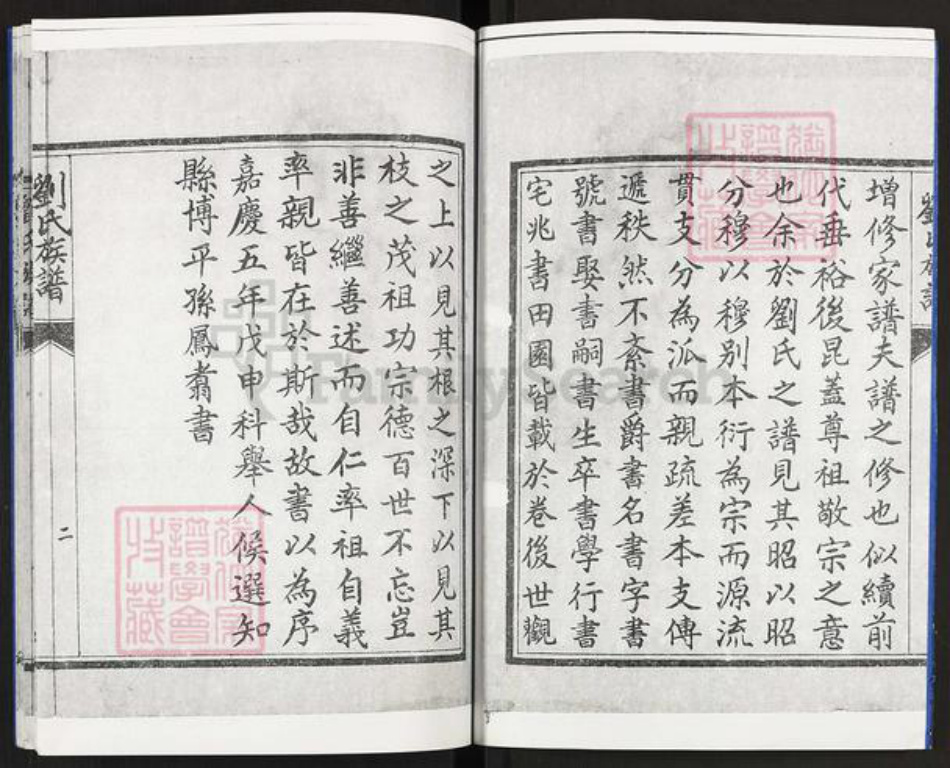 增修家譜夫譜之修也似續前
代垂裕後昆蓋尊祖敬宗之意
也余於劉氏之譜見其昭以昭
分穆以穆別本衍為宗而源流
貫支分為派而親疏差本支傳
遞秩然不紊書爵書名書字書
號書娶書嗣書生卒書學行書
宅兆書田園皆載於卷後世觀
之上以見其根之深下以見其
枝之茂祖功宗德百世不忘豈
非善繼善述而自仁率祖自義
率親皆在於斯哉故書以為序
嘉慶五年戊申科舉人候選知
縣博平孫鳳翥書
劉氏族譜
二
FamilySearch